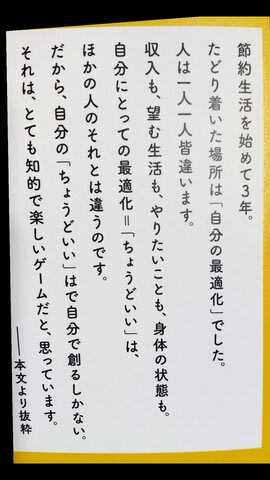 節約生活を始めて3年。
たどり着いた場所は「自分の最適化」でした。
人は一人一人皆違います。
収入も、望む生活も、やりたいことも、身体の状態も。
自分にとっての最適化＝「ちょうどいい」は、
ほかの人のそれとは違うのです。
だから、自分の「ちょうどいい」はで自分で創るしかない。
それは、とても知的で楽しいゲームだと、思っています。
――本文より抜粋